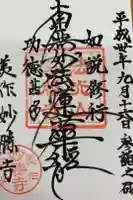 平成廿年九月十六日参詣之砌
如説修行
南無妙法蓮華経
功徳
美作妙勝寺